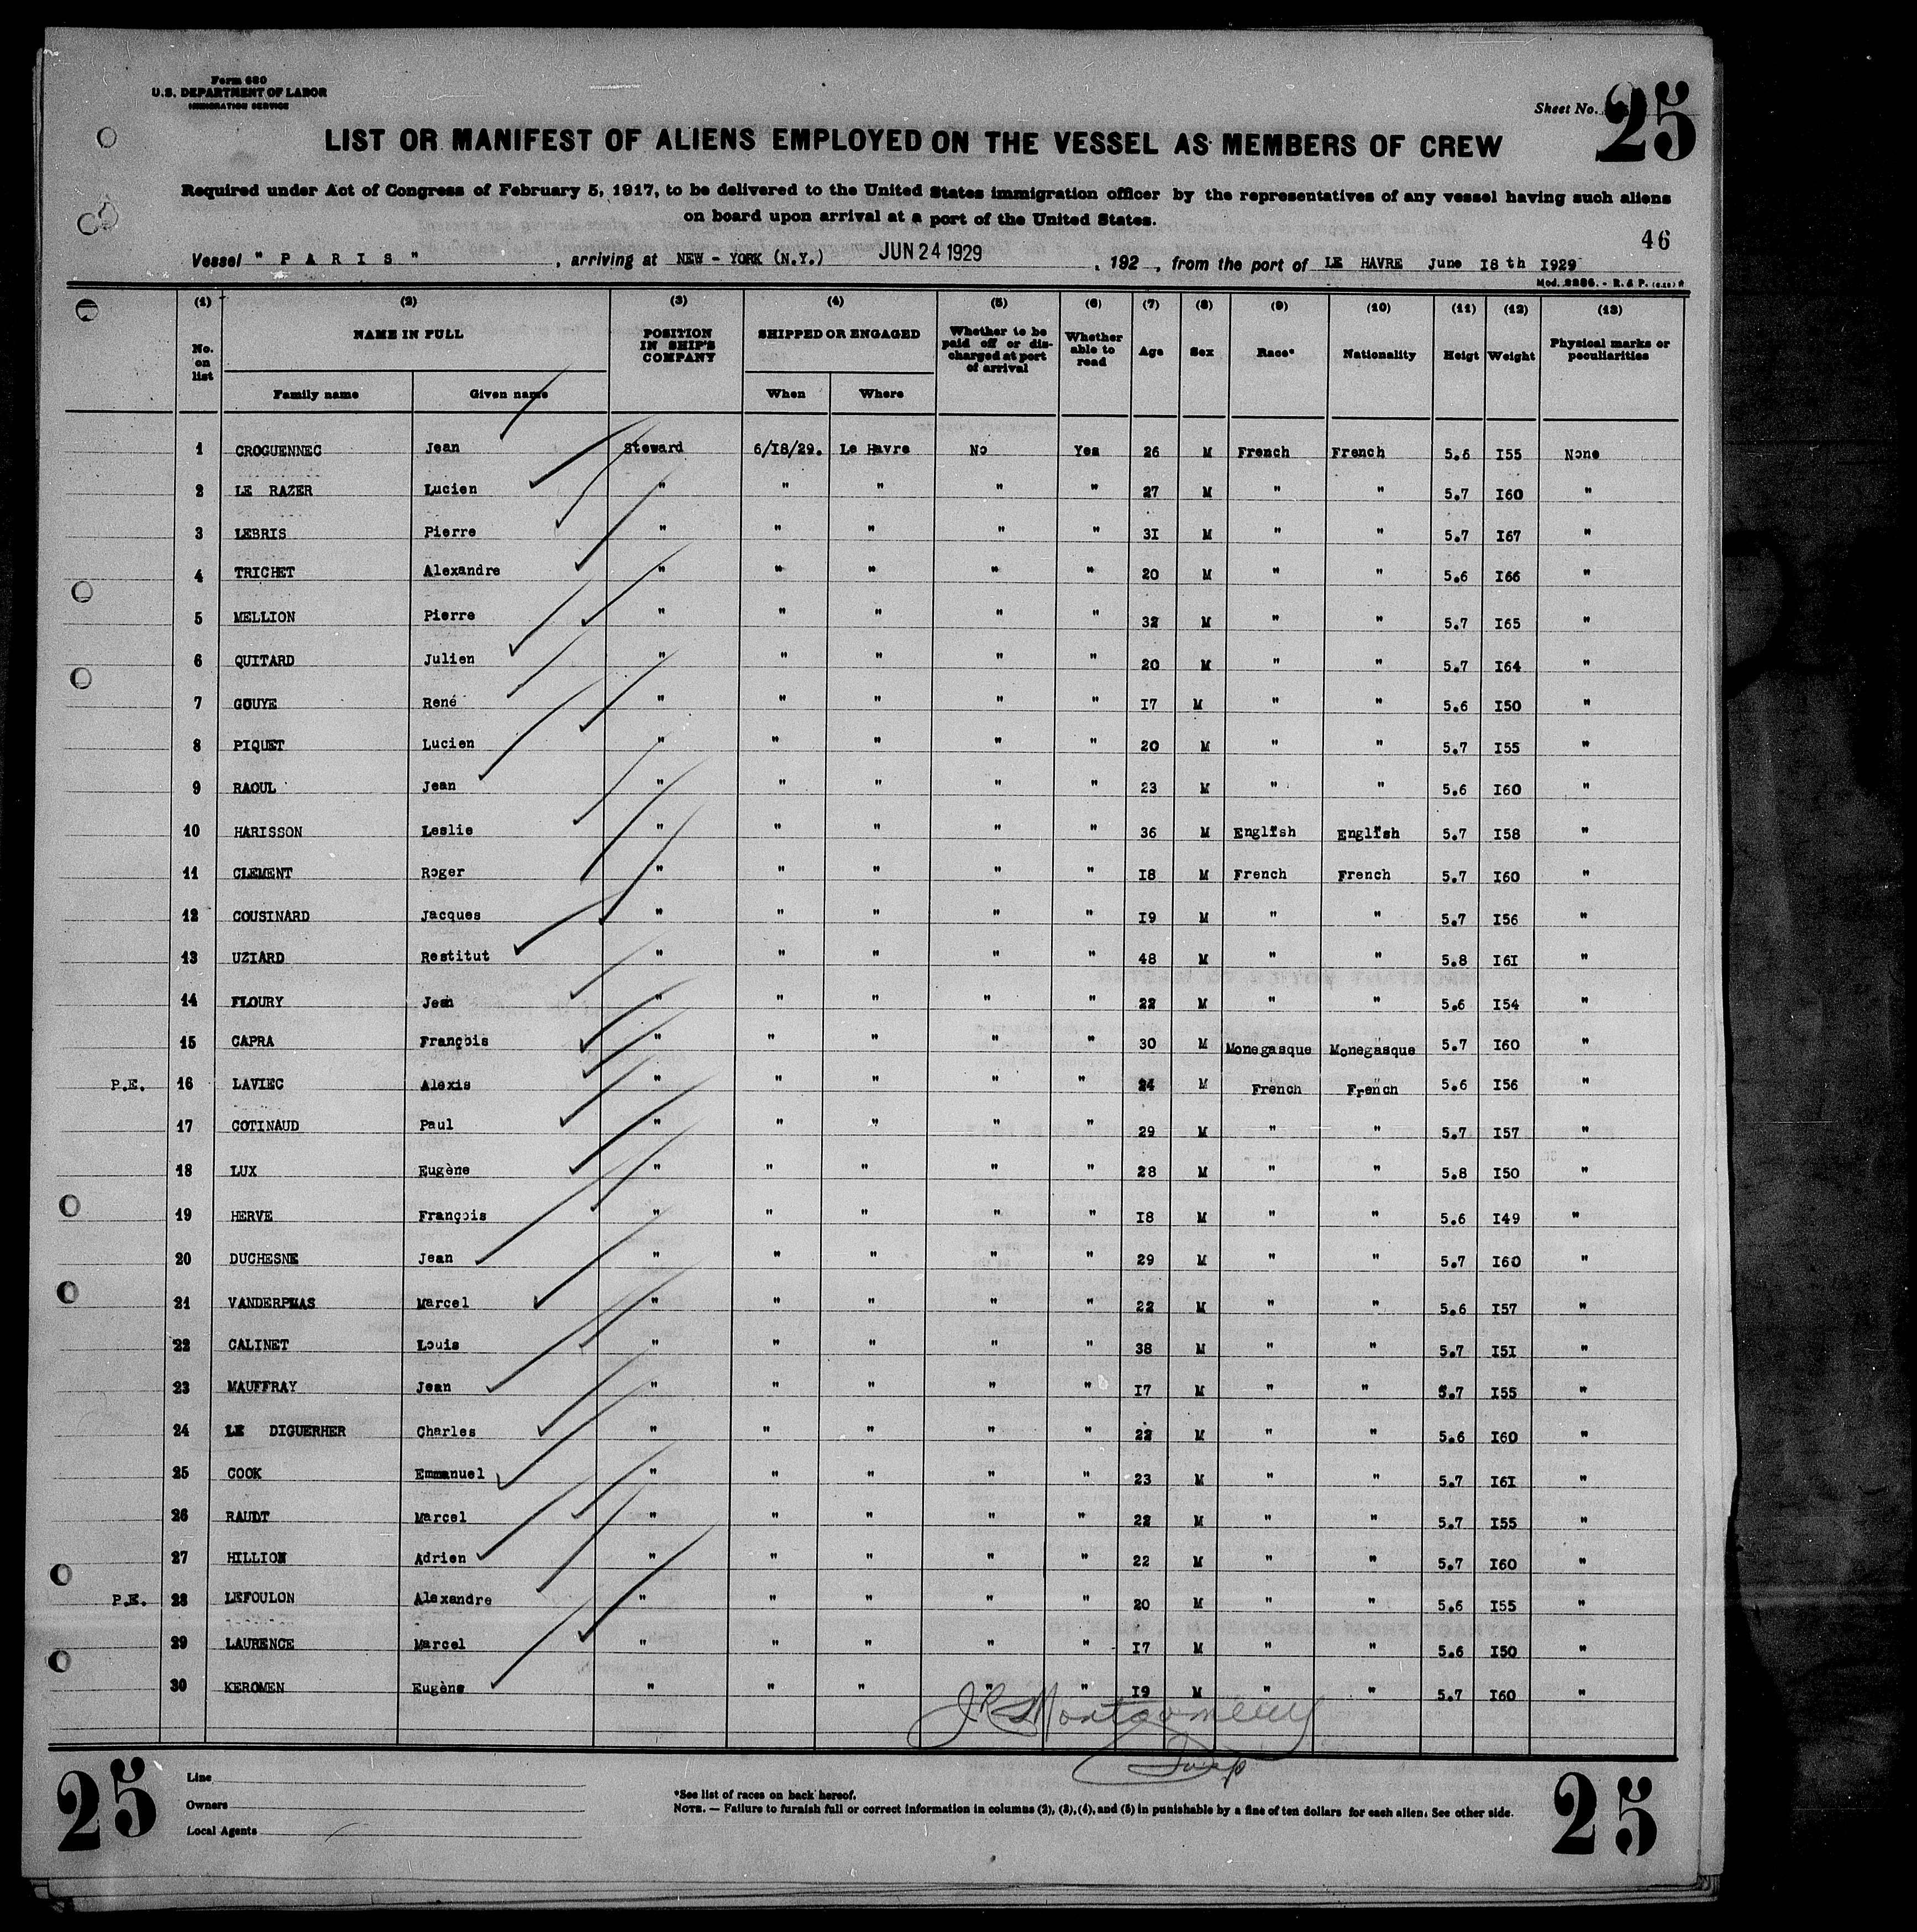 Form 680
U.S. DEPARTMENT OF LABOR
IMMIGRATION SERVICE
Sheet No. 25
LIST OR MANIFEST OF ALIENS EMPLOYED ON THE VESSEL AS MEMBERS OF CREW
Required under Act of Congress of February 5, 1917, to be delivered to the United States immigration officer by the representatives of any vessel having such aliens
on board upon arrival at a port of the United States.
46
Vessel " P A R I S " , arriving at NEW - YORK (N.Y.) JUN 24 1929 , 192 , from the port of LE HAVRE June I8 th I929
Mod. 2286. - R. & P. (6.28) *
(1) (2) (3) (4) (5) (6) (7) (8) (9) (10) (11) (12) (13)
No. on list NAME IN FULL POSITION IN SHIP'S COMPANY SHIPPED OR ENGAGED Whether to be paid off or discharged at port of arrival Whether able to read Age Sex Race* Nationality Heigt Weight Physical marks or peculiarities
Family name Given name When Where
1 CROGUENNEC Jean Steward 6/I8/29. Le Havre No Yes 26 M French French 5.6 I55 None
2 LE RAZER Lucien " " " " " 27 M " " 5.7 I60 "
3 LEBRIS Pierre " " " " " 3I M " " 5.7 I67 "
4 TRICHET Alexandre " " " " " 20 M " " 5.6 I66 "
5 MELLION Pierre " " " " " 32 M " " 5.7 I65 "
6 QUITARD Julien " " " " " 20 M " " 5.7 I64 "
7 GOUYE René " " " " " I7 M " " 5.6 I50 "
8 PIQUET Lucien " " " " " 20 M " " 5.7 I55 "
9 RAOUL Jean " " " " " 23 M " " 5.6 I60 "
10 HARISSON Leslie " " " " " 36 M English English 5.7 I58 "
11 CLEMENT Roger " " " " " I8 M French French 5.7 I60 "
12 COUSINARD Jacques " " " " " I9 M " " 5.7 I56 "
13 UZIARD Restitut " " " " " 48 M " " 5.8 I6I "
14 FLOURY Jean " " " " " 22 M " " 5.6 I54 "
15 CAPRA François " " " " " 30 M Monegasque Monegasque 5.7 I60 "
P.E. 16 LAVIEC Alexis " " " " " 24 M French French 5.6 I56 "
17 COTINAUD Paul " " " " " 29 M " " 5.7 I57 "
18 LUX Eugène " " " " " 28 M " " 5.8 I50 "
19 HERVE François " " " " " I8 M " " 5.6 I49 "
20 DUCHESNE Jean " " " " " 29 M " " 5.7 I60 "
21 Marcel " " " " " 22 M " " 5.6 I57 "
22 CALINET Louis " " " " " 38 M " " 5.7 I5I "
23 MAUFFRAY Jean " " " " " I7 M " " 5.7 I55 "
24 LE DIGUERHER Charles " " " " " 22 M " " 5.6 I60 "
25 COOK Emmanuel " " " " " 23 M " " 5.7 I6I "
26 RAUDT Marcel " " " " " 22 M " " 5.7 I55 "
27 HILLION Adrien " " " " " 22 M " " 5.7 I60 "
P.E. 28 LEFOULON Alexandre " " " " " 20 M " " 5.6 I55 "
29 LAURENCE Marcel " " " " " I7 M " " 5.6 I50 "
30 KEROMEN Eugène " " " " " I9 M " " 5.7 I60 "
J R Montgomery
25
Line
Owners
Local Agents
*See list of races on back hereof.
NOTE. — Failure to furnish full or correct information in columns (2), (3), (4), and (5) in punishable by a fine of ten dollars for each alien. See other side.
25